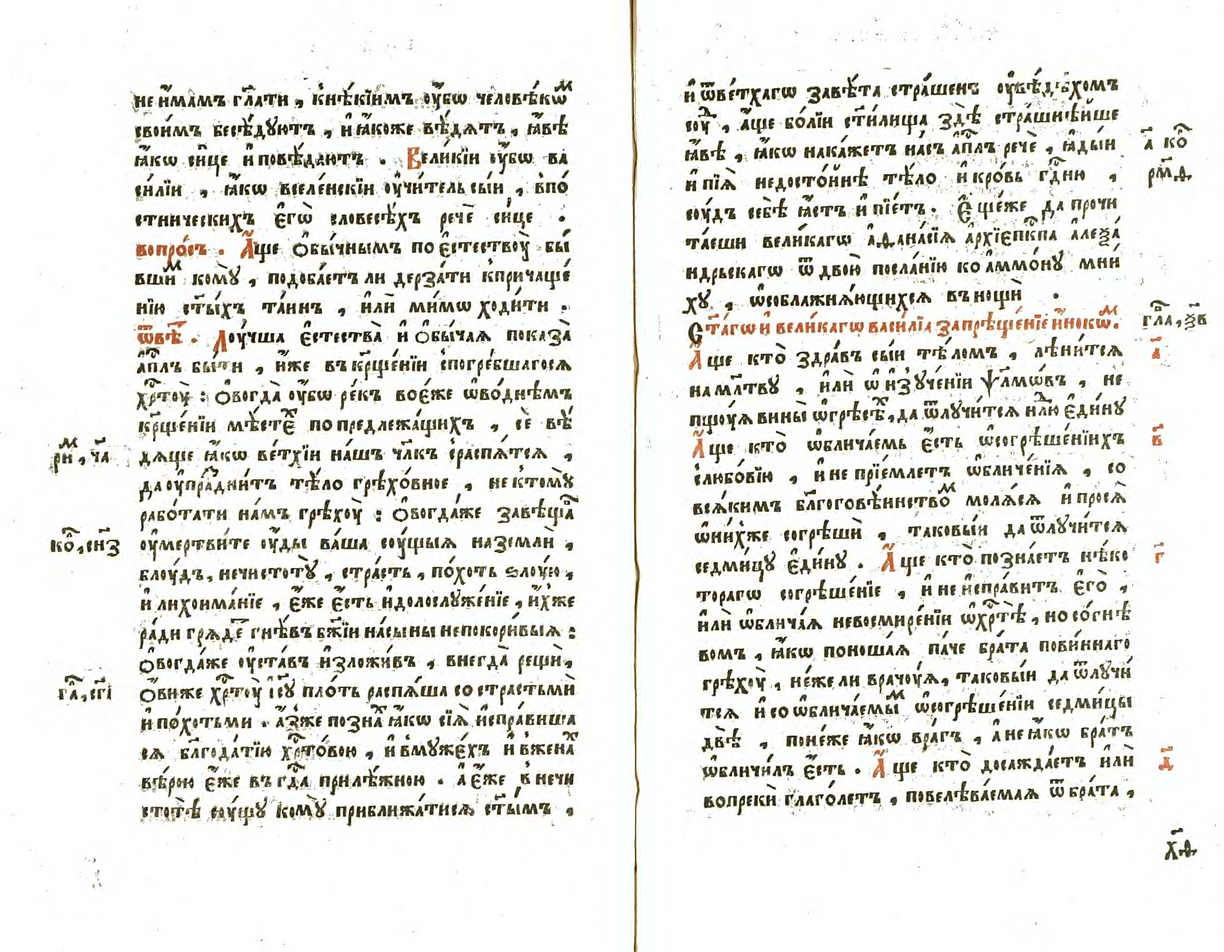 не и҆́мамъ гл҃ати , кнѣ́кїимъ ᲂу҆́бѡ человѣ́кѡⷨ
свои́мъ бесѣ́дуютъ , и҆ ꙗ҆́коже вѣ́дятъ , ꙗ҆́вѣ
ꙗ҆́кѡ си́це и҆ повѣ́даютъ . Вели́кїи ᲂу҆́бѡ ва
си́лїи , ꙗ҆́кѡ вселе́нскїи ᲂу҆чи́тель сы́и , впо́
стническихъ є҆гѡ̀ словесѣ́хъ речѐ си́це .
вопро́съ . А҆́ще ѻ҆бы́чнымъ по є҆стествꙋ̀ бы́
вшиⷨ комꙋ̀ , подоба́етъ ли дерза́ти кпричаще́
нїю ст҃ы́хъ та́инъ , и҆лѝ ми́мѡ ходи́ти .
ѿвѣ́ . Лꙋ́чша є҆стества̀ и҆ ѻ҆бы́чая показа̀
а҆пⷭ҇лъ бы́ти , и҆́же въ кр҃ще́нїи спогре́бшагося
хрⷭ҇тꙋ̀ : ѻ҆вогда̀ ᲂу҆́бѡ ре́къ воє́же ѡ҆во́днѣмъ
кр҃ще́нїи мѣ́сте по предлежа́щихъ , сѐ вѣ́
дяще ꙗ҆́кѡ ве́тхїи на́шъ чл҃къ сраспя́тся ,
да ᲂу҆пра́зднитъ тѣ́ло грѣхо́вное , не ктомꙋ̀
рабо́тати на́мъ грѣхꙋ̀ : ѻ҆вогда́же завѣща̀
ᲂу҆мертви́те ᲂу҆́ды ва́ша сꙋ́щыя на землѝ ,
блꙋ́дъ , нечистотꙋ̀ , стра́сть , по́хоть ѕлꙋ́ю ,
и҆ лихоима́нїе , є҆́же є҆́сть і҆долослуже́нїе , и҆́хже
ра́ди гряде́ гнѣ́въ бж҃їи на сы́ны непокори́выя :
ѻ҆вогда́же ᲂу҆ста́въ и҆зложи́въ , внегда̀ рещѝ ,
ѻ҆ни́же хрⷭ҇тꙋ̀ і҆с҃ꙋ пло́ть распя́ша со страстьмѝ
и҆ по́хотьми . а҆́зже позна̀ ꙗ҆́кѡ сїя̀ и҆спра́виша
ся благода́тїю хрⷭ҇то́вою , и҆ в мꙋже́хъ и҆ в жена́ⷯ
вѣ́рою є҆́же въ гдⷭ҇а прилѣ́жною . а҆ є҆́же в нечи
стотѣ̀ сꙋ́щꙋ комꙋ̀ приближа́тися ст҃ы́мъ ,
риⷨ , ча
коⷧ , сн҃з
га , сг҃і
и҆ ѿве́тхагѡ завѣ́та стра́шенъ ᲂу҆вѣ́дѣхомъ
сꙋⷣ , а҆́ще бо́лїи ст҃и́лища здѣ̀ страшнѣ́йше
ꙗ҆́вѣ , ꙗ҆́кѡ нака́жетъ на́съ а҆пⷭ҇лъ речѐ , ꙗ҆ды́и
и҆ пїя̀ недосто́йнѣ тѣ́ло и҆ кро́вь гдⷭ҇ню ,
сꙋ́дъ себѣ̀ ꙗ҆́стъ и҆ пїе́тъ . Е҆ще́же да прочи
та́еши вели́кагѡ а҆ѳана́сїя а҆рхїеп҃кпа а҆леѯа́
ндрьскагѡ ѿ двою̀ посла́нїю ко а҆ммо́нꙋ мни́
хꙋ , ѡ҆ соблажня́ющихся въ нощѝ .
Ст҃а́гѡ и҆ вели́кагѡ васи́лїа запреще́нїе и҆́нокѡⷨ .
А҆́ще кто̀ здра́въ сы́и тѣ́ломъ , лѣни́тся
на мл҃тву , и҆лѝ ѡ҆ и҆зꙋче́нїи ѱалмѡ́въ , не
пщꙋ́я вины̀ ѡ҆ грѣсѣ́хъ , да ѿлꙋчи́тся нлⷣю є҆ди́нꙋ
А҆́ще кто̀ ѡ҆блича́емь є҆́сть ѡ҆ согрѣше́нїихъ
слюбо́вїю , и҆ не прїе́млетъ ѡ҆бличе́нїя , со
вся́кимъ бл҃гоговѣ́инствоⷨ моля́ся и҆ прося̀
ѡ҆ ни́хже согрѣшѝ , таковы́и да ѿлꙋчи́тся
седми́цꙋ є҆ди́нꙋ . А҆́ще кто̀ позна́етъ нѣ́ко
тораго согрѣше́нїе , и҆ не и҆спра́витъ є҆го̀ ,
и҆лѝ ѡ҆блича́я не восмире́нїи ѡ҆ хрⷭ҇тѣ̀ , но со́ гнѣ
вомъ , ꙗ҆́кѡ поноша́я па́че бра́та пови́ннаго
грѣхꙋ̀ , не́же ли врачꙋ́я , таковы́и да ѿлꙋчи́
тся и҆ со ѡ҆блича́емыⷨ ѡ҆ согрѣше́нїи седми́цы
двѣ̀ , поне́же ꙗ҆́кѡ вра́гъ , а҆ не ꙗ҆́кѡ бра́тъ
ѡ҆бличи́лъ є҆́сть . А҆́ще кто̀ досажда́етъ и҆лѝ
вопрекѝ глаго́летъ , повелѣва́емая ѿ бра́та ,
а҃ коⷬ
рм҃ѳ
гл҃а , ѯ҃в
а҃
в҃
г҃
д҃
х҃ѳ